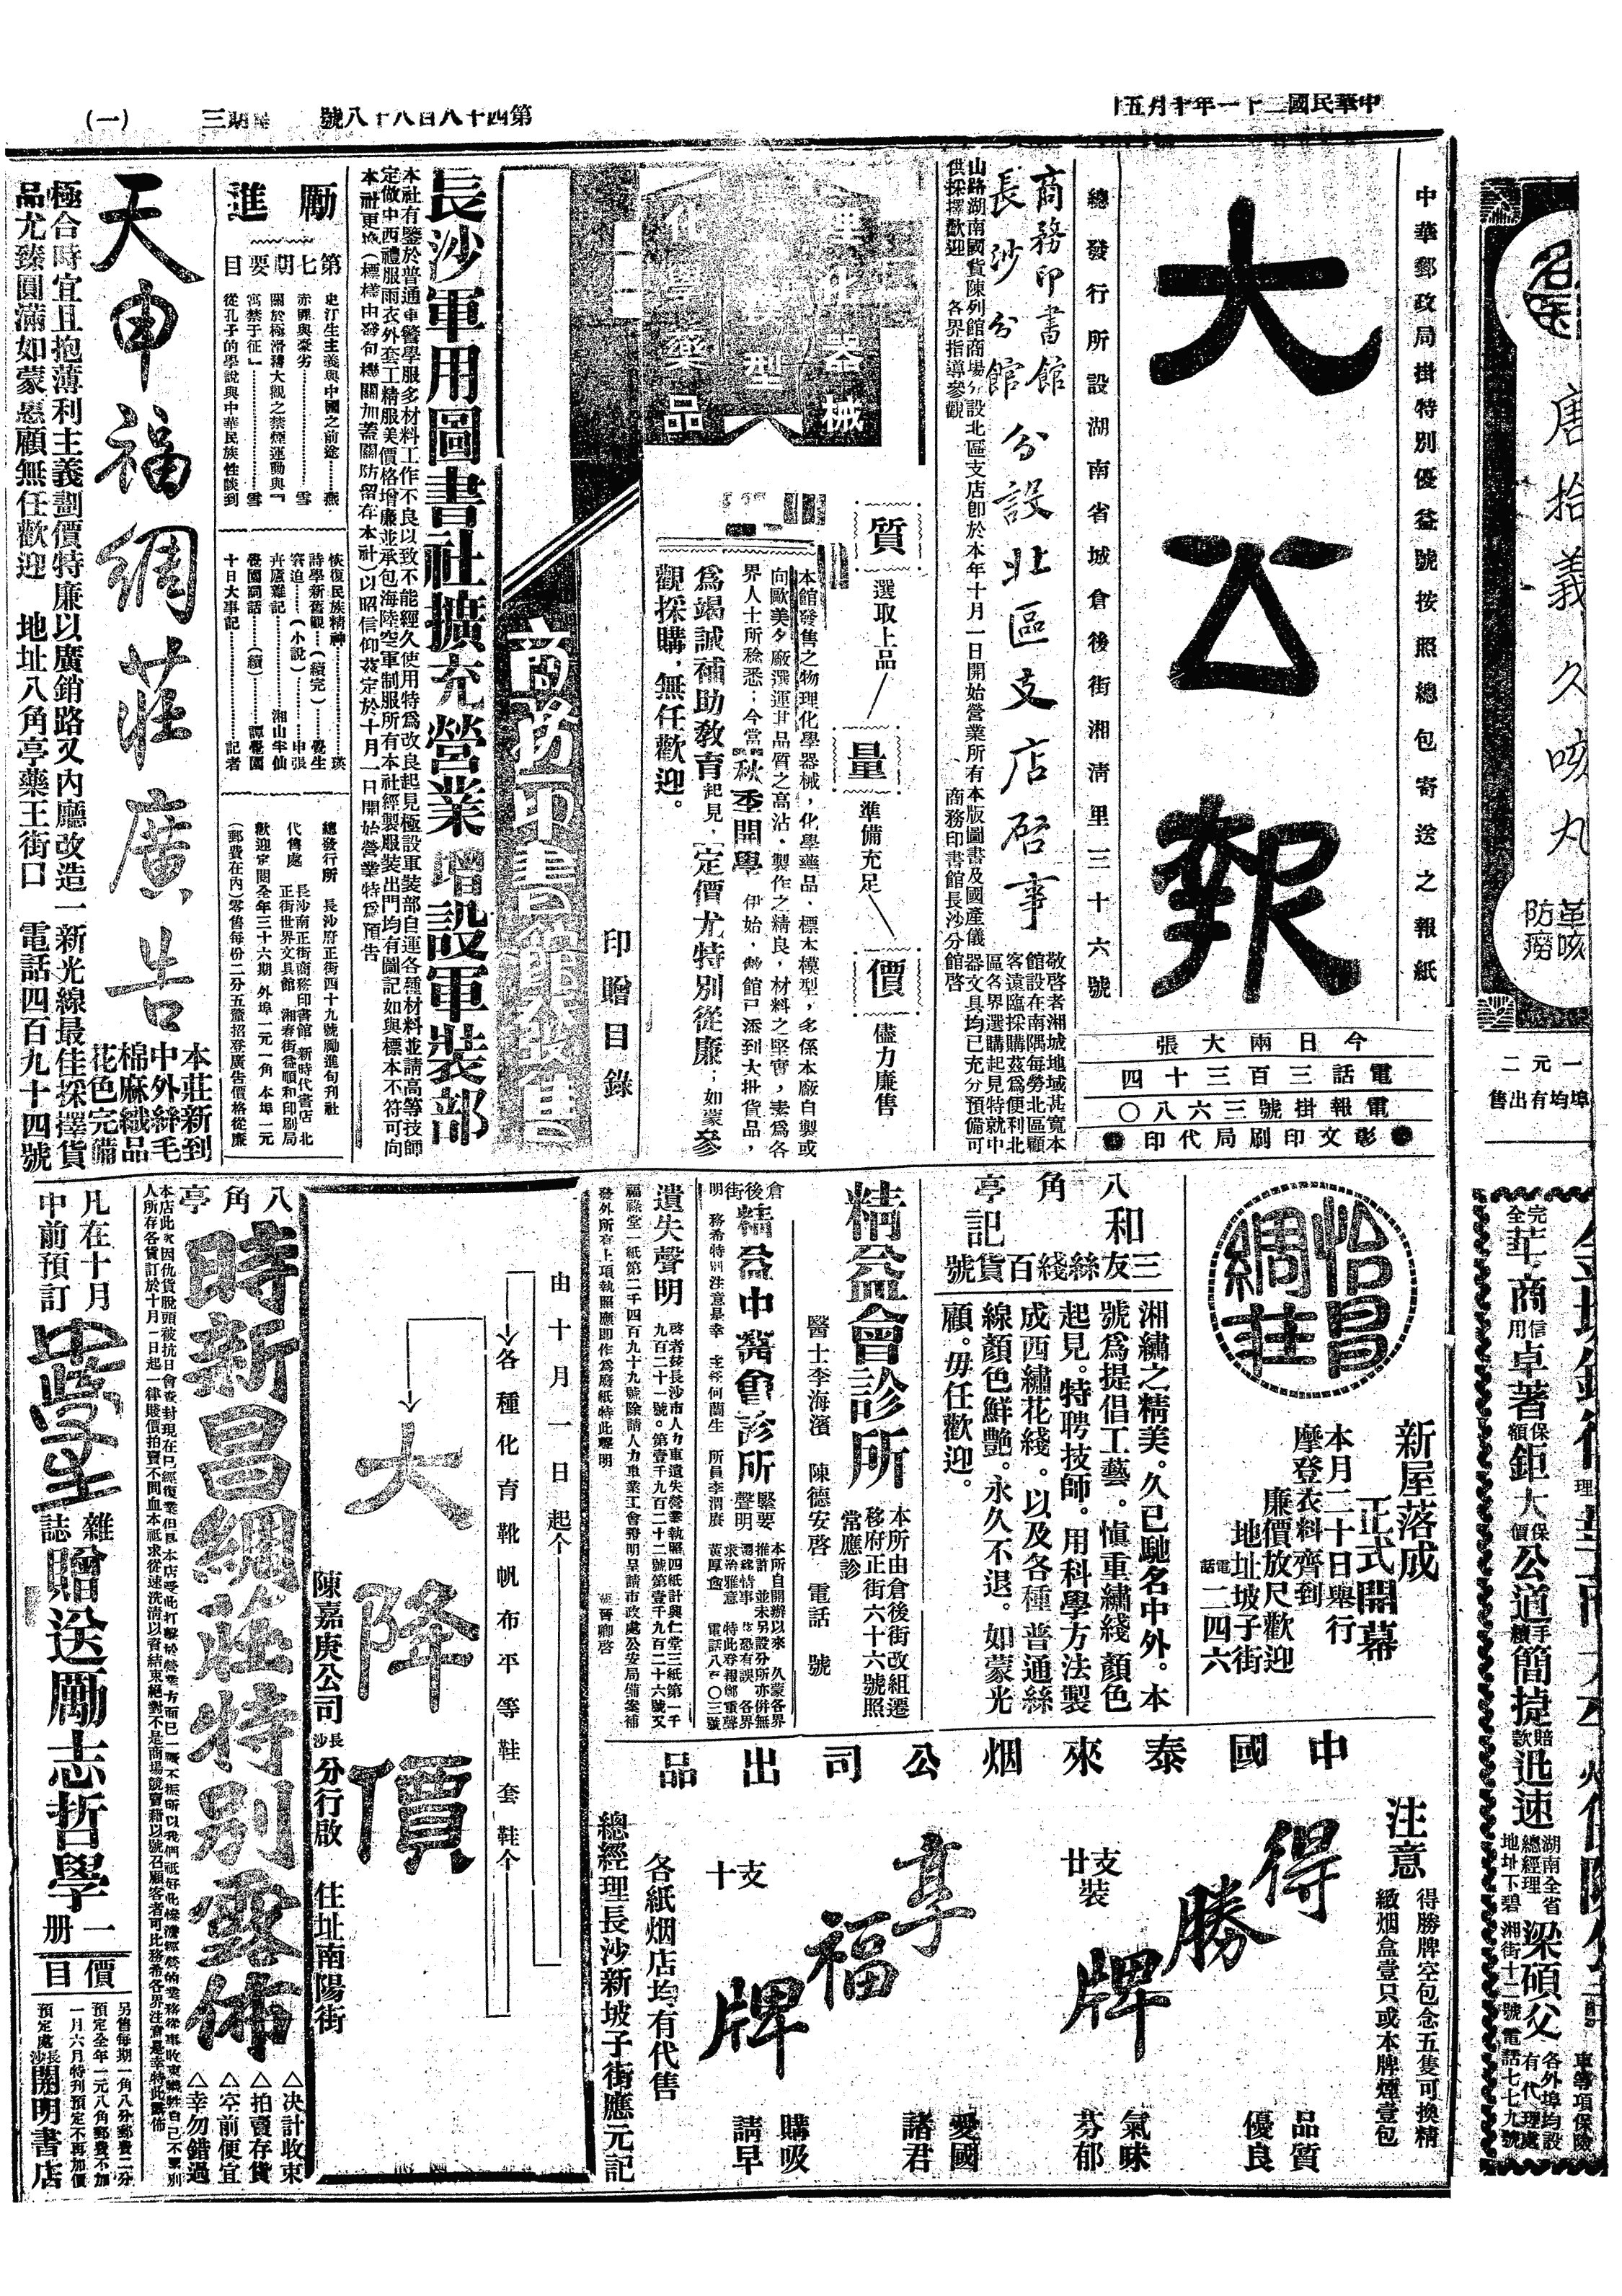 中華民國二十一年十月五日
第四千八百八十八號
星期三
(一)
中華郵政局掛特別優益號按照總包寄送之報紙
大公報
總發行所設湖南省城倉後街湘清里三十六號
今日兩大張
電話三百三十四
電報掛號三六八〇
彰文印刷局代印
商務印書館
長沙分館
分設北區支店啓事
敬啓者湘城地域甚寬本
館設在南隅每勞北區顧
客遠臨採購茲爲便利北
區各界選購起見特就中
山路湖南國貨陳列館商場分設北區支店卽於本年十月一日開始營業所有本版圖書及國產儀
器文具均已充分預備可
供採擇歡迎
各界指導參觀
商務印書館長沙分館啓
理化器械
模型
化學藥品
質
選取上品
量
準備充足
價
儘力廉售
本館發售之物理化學器械,化學藥品,標本模型,多係本廠自製或
向歐美名廠選運其品質之高沾,製作之精良,材料之堅實,素爲各
界人士所稔悉;今當秋季開學伊始,敝館已添到大批貨品,
爲竭誠補助教育起見,定價尤特別從廉;如蒙參
觀採購,無任歡迎。
印贈目錄
商務印書館發售
長沙軍用圖書社擴充營業增設軍裝部
本社有鑒於普通軍警學服多材料工作不良以致不能經久使用特爲改良起見極設軍裝部自運各種材料並請高等技師
定做中西禮服雨衣外套工精服美價格增廉並承包海陸空軍制服所有本社經製服裝出門均有圖記如與標本不符可向
本社更換(標樣由發句機關加蓋關防留存本社)以昭信仰茲定於十月一日開始營業特爲預告
勵進
第七期要目
史汀生主義與中國之前途……燕
赤裸與豪劣……雪
關於極滑稽大觀之禁煙運動與『
寓禁于征』……雪
從孔子的學說與中華民族性談到
恢復民族精神……瑛
詩學新舊觀(續完)……覺生
窘迫……(小說)……申張
卉廬雜記……湘山半仙
覺園詞話……(續)……譚覺園
十日大事記……記者
總發行所 長沙府正街四十九號勵進旬刊社
代售處 長沙南正街商務印書館 新時代書店 北
正街世界文具館 湘春街益順和印刷局
歡迎定閱全年三十六期 外埠一元一角 本埠一元
(郵費在內)零售每份二分五釐招登廣告價格從廉
天申福綢莊廣告
本莊新到
中外絲毛
棉麻織品
花色完備
極合時宜且抱薄利主義劃價特廉以廣銷路又內廳改造一新光線最佳採擇貨
品尤臻圓滿如蒙惠顧無任歡迎 地址八角亭藥王街口 電話四百九十四號
怡昌綢莊
新屋落成
正式開幕
本月二十日舉行
摩登衣料齊到
廉價放尺歡迎
地址坡子街
電話二二四六
八角亭
和記
三友絲綫百貨號
湘繡之精美。久已馳名中外。本
號爲提倡工藝。愼重繡綫顏色
起見。特聘技師。用科學方法製
成西繡花綫。以及各種普通絲
線顏色鮮艷。永久不退。如蒙光
顧。毋任歡迎。
精益會診所
本所由倉後街改組遷
移府正街六十六號照
常應診
醫士李海濱 陳德安啓 電話 號
倉後街
精益中醫會診所
緊要聲明
本所自開辦以來 久蒙各界
推許 並未另設分所亦併無
遷移情事 先恐有誤 各界
求治雅意 特此登報鄭重聲
明 務希特別注意是幸 主任何蘭生 所員李渭賡 黃厚愈 電話八百〇三號
遺失聲明
啓者茲長沙市人力車遺失營業執照四紙計興仁堂三紙第一千
九百二十一號。第壹千九百二十二號第壹千九百二十六號又
福祿堂一紙第二千四百九十九號除請人力車業工會證明呈請市政處公安局備案補
發外所有上項執照應即作爲廢紙特此聲明
中國泰來烟公司出品
注意
得勝牌空包念五隻可換精
緻烟盒壹只或本牌煙壹包
得勝牌
廿支裝
享福牌
十支
品質優良
氣味芬郁
愛國諸君
購吸請早
各紙烟店均有代售
總經理長沙新坡子街應元記
由十月一日起
各種化育靴帆布平等鞋套鞋
大降價
陳嘉庚公司長沙分行啟 住址南陽街
八角亭
時新昌綢莊特別露佈
△決計收束
△拍賣存貨
△空前便宜
△幸勿錯過
凡在十月
中前預訂
中學生
雜誌
贈送勵志哲學
一册
價目
另售每期一角八分郵費二分
預定全年一元八角郵費不加
一月六月特刊預定不再加價
預定處長沙開明書店
唐拾義久咳丸
革咳
防癆
一元二
埠均有出售
完全華商
信用卓著
保額鉅大
保價公道
手續簡捷
賠款迅速
湖南全省
總經理
梁碩父
地址下碧湘街十二號電話七七九號
各外埠均設
有代理處